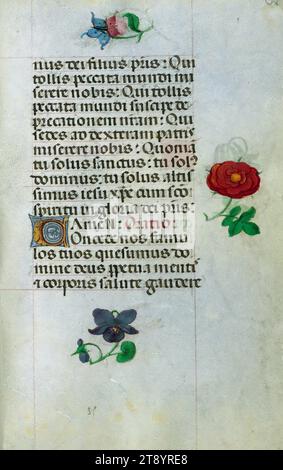 nus dei filius pris: Qui
tollis peccata mundi mi
serere nobis: Qui tollis
peccata mundi suscipe de
precationem nram: Qui
sedes ad dexteram patis
miserere nobis: Quonia
tu solus sanctus: tu sol
dominus: tu solus altis
simus iesu xpe cum sco
spiritu in gloria dei pris:
Amen: Oratio:
Concede nos famu
los tuos quesumus do
mine deus ppetua mentis
et corporis salute gaudere
alamy
Image ID: 2T8YRE8
www.alamy.com